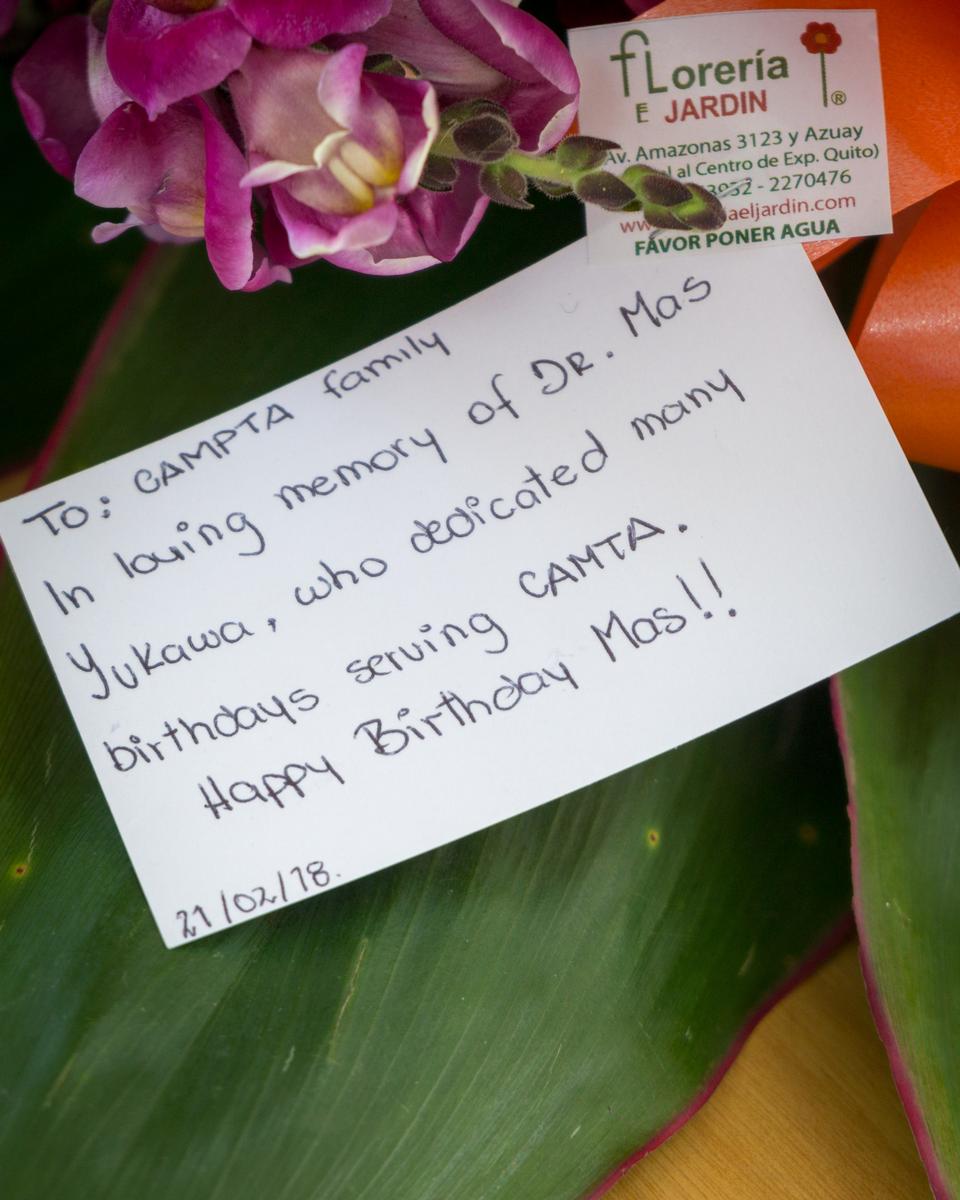 fLorería
E JARDIN
®
Av. Amazonas 3123 y Azuay
al Centro de Exp. Quito)
- 2270476
aeljardin.com
FAVOR PONER AGUA
To: CAMPTA family
In loving memory of DR. Mas
Yukawa, who dedicated many
birthdays serving CAMTA.
Happy Birthday Mas!!
21/02/18.